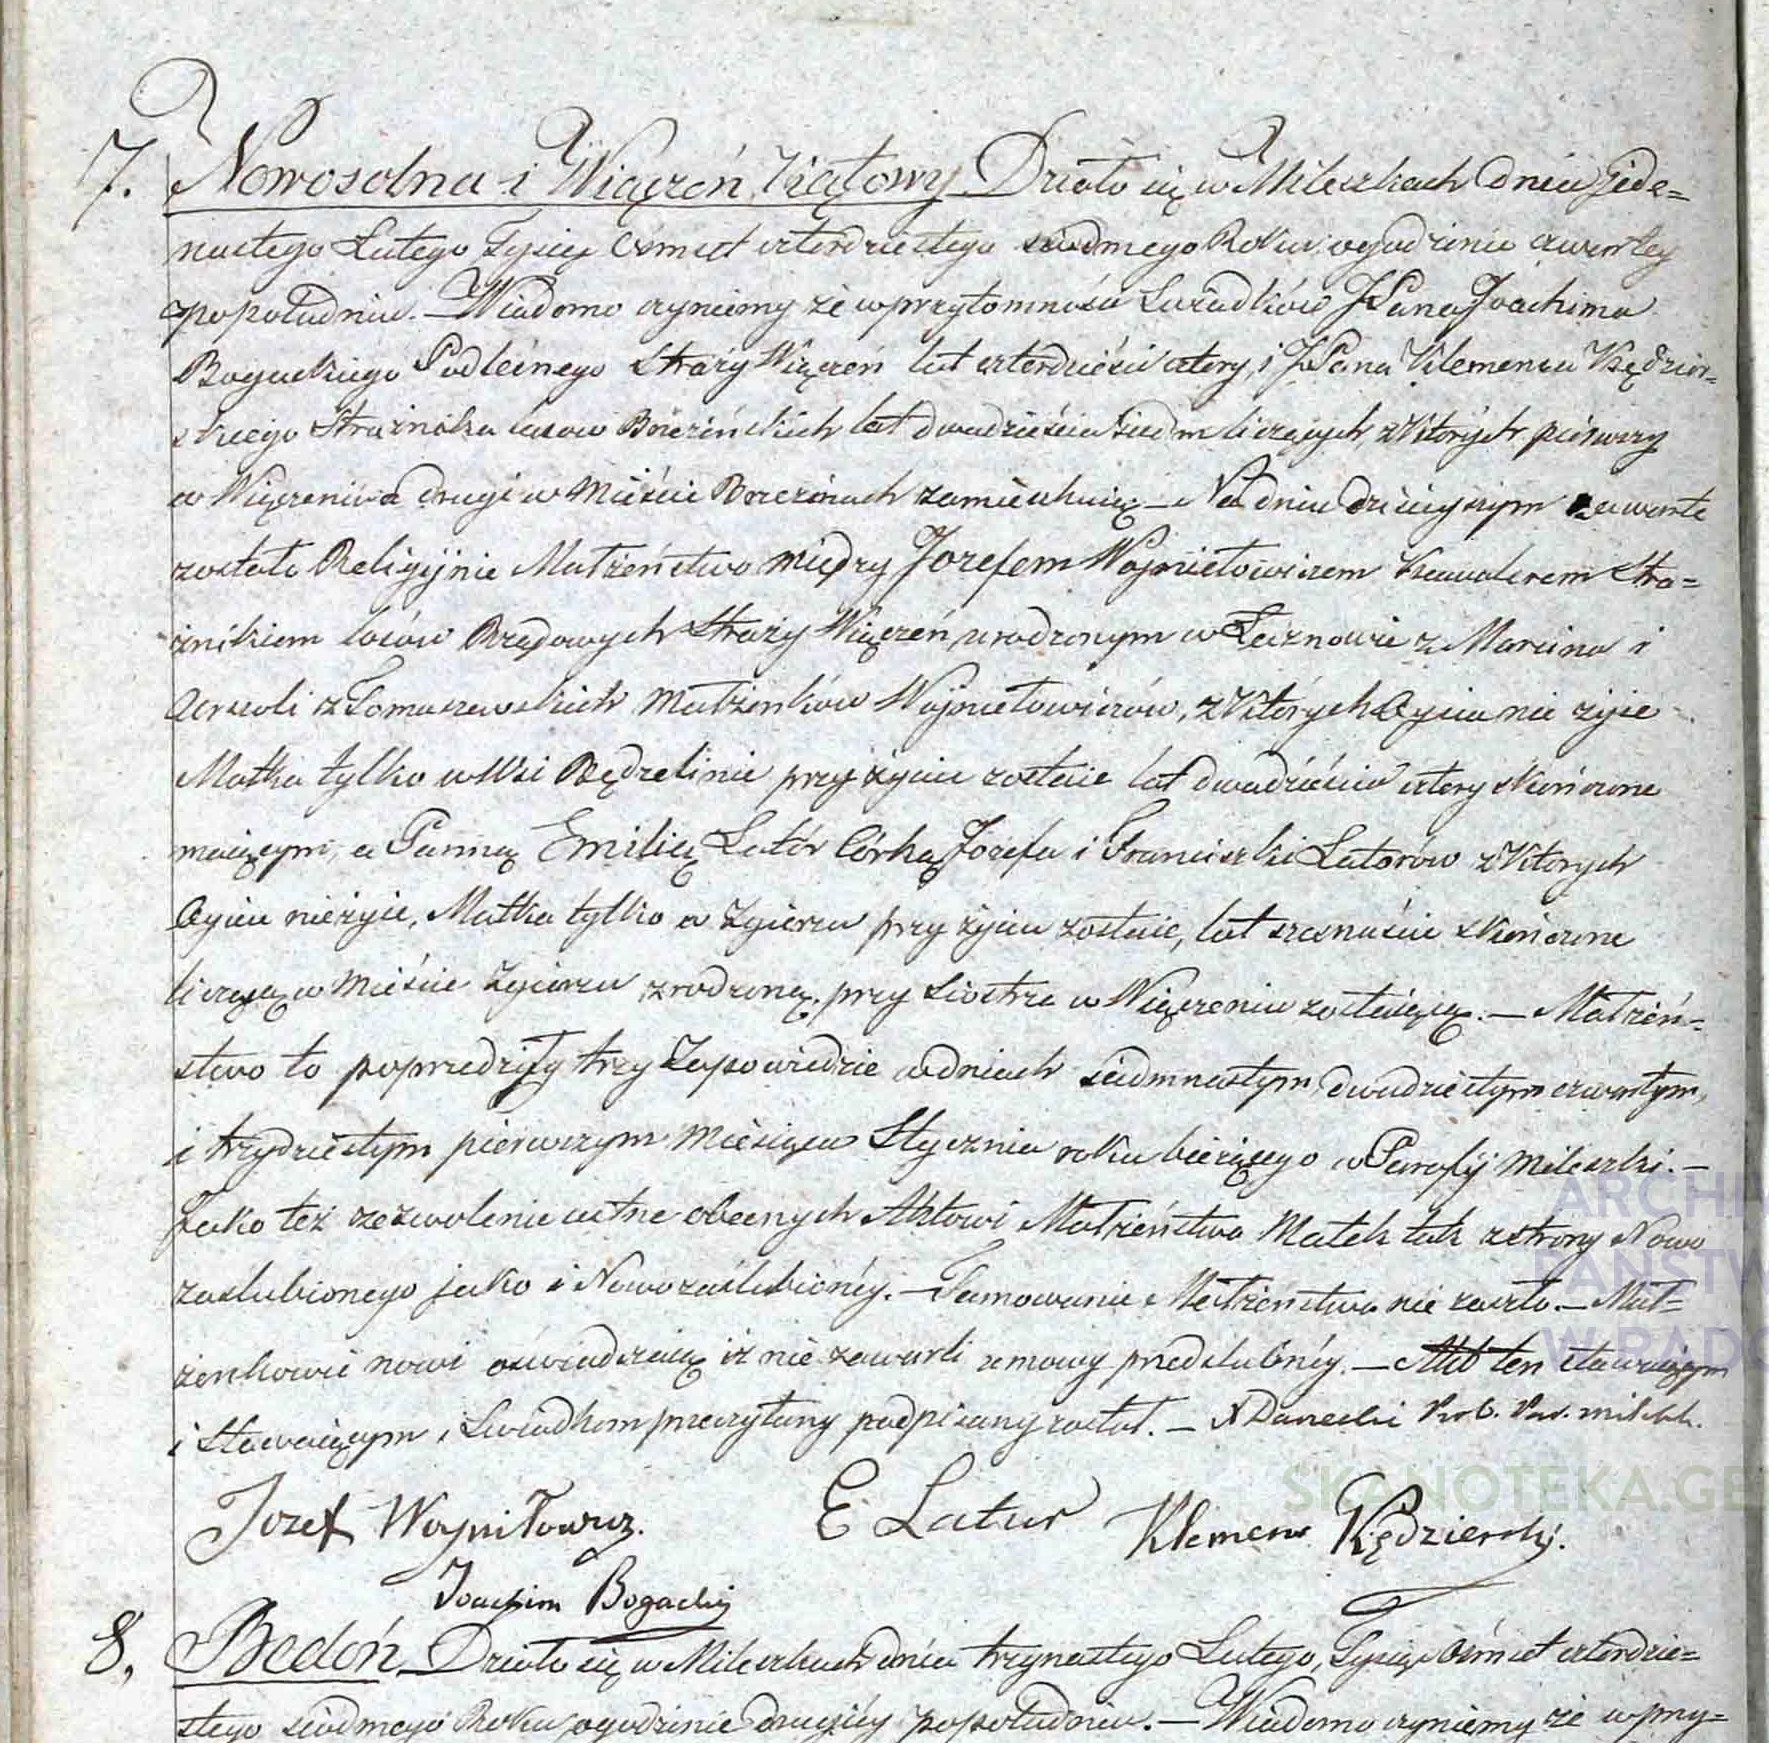 7. Nowosolna i Wiączeń Rządowy Działo się w Mileszkach dnia Jede=
nastego Lutego Tysiąc Ośmset czterdziestego siódmego Roku, o godzinie czwartey
popołudniu. — Wiadomo czyniemy że w przytomności Świadków JPana Joachima
Bogackiego Podleśnego Straży Wiączeń lat czterdzieści cztery, i JPana Klemensa Kędzier=
skiego Strażnika lasow Brzezińskich lat dwadzieścia siedm liczących, z których pierwszy
w Wiączeniu a drugi w Mieście Brzezinach zamieszkuią — Na dniu dzisieyszym zawarte
zostało Religijnie Małżeństwo między Jozefem Woyniełowiczem Kawalerem Stra=
żnikiem lasów Rządowych Straży Wiączeń, urodzonym w Łaznowie z Marcina i
Urszuli z Tomaszewskich Małżonków Woyniełowiczów, z których Oyciec nie żyie
Matka tylko w Wsi Będzelinie przy życiu zostaie lat dwadzieścia cztery skończone
maiącym, a Panną Emilią Lator Córką Józefa i Franciszki Latorów z których
Oyciec nieżyie, Matka tylko w Zgierzu przy życiu zostaie, lat szesnaście skończone
liczącą w Mieście Zgierzu zrodzoną, przy Siostrze w Wiączeniu zostaiącą. — Małżeń=
stwo to poprzedziły trzy Zapowiedzie w dniach siedmnastym, dwudziestym czwartym,
i trzydziestym pierwszym Miesiąca Stycznia roku bieżącego w Parafij Mileszki. —
Jako też zezwolenie ustne obecnych Aktowi Małżeństwa Matek tak z strony Nowo
zaślubionego jako i Nowozaślubionéy. — Tamowanie Małżeństwa nie zaszło. — Mał=
żonkowie nowi oświadczaią iż nie zawarli umowy przedślubnéy. — Akt ten stawaiącym
i Stawaiącym, Świadkom przeczytany podpisany został. — X Danecki Prob. Par. Mileszk.
Jozef Woyniłowicz. E Latur Klemens Kędzierski.
Joachim Bogacki
8. Bedoń Działo się w Mileszkach dnia trzynastego Lutego, Tysiąc Ośmset czterdzie=
stego siódmego Roku, o godzinie drugiéy popołudniu. — Wiadomo czyniemy że w przy=
ARCHI
PAŃSTW
W RADO
SKANOTEKA.GE